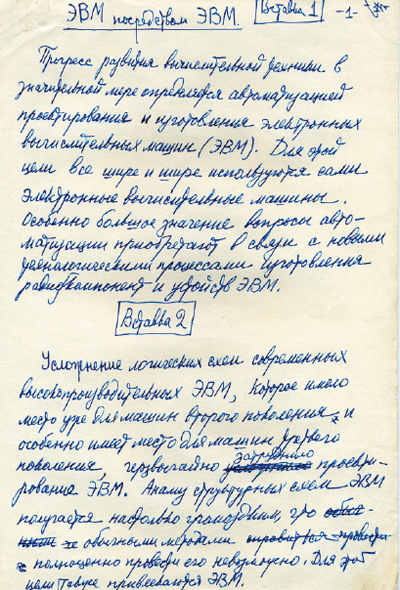 ЭВМ посредством ЭВМ. Вставка 1 -1-
Прогресс развития вычислительной техники в
значительной мере определяется автоматизацией
проектирования и изготовления электронных
вычислительных машин (ЭВМ). Для этой
цели все шире и шире используются сами
электронные вычислительные машины.
Особенно большое значение вопросы авто-
матизации приобретают в связи с новыми
технологическими процессами изготовления
радиокомпонент и устройств ЭВМ.
Вставка 2
Усложнение логических схем современных
высокопроизводительных ЭВМ, которое имело
место уже для машин второго поколения и
особенно имеет место для машин третьего
поколения, чрезвычайно затруднило проекти-
рование ЭВМ. Анализ структурных схем ЭВМ
получается настолько громоздким, что обыч-
ными обычными методами справиться провести
полноценно провести его невозможно. Для этой
цели также привлекаются ЭВМ.